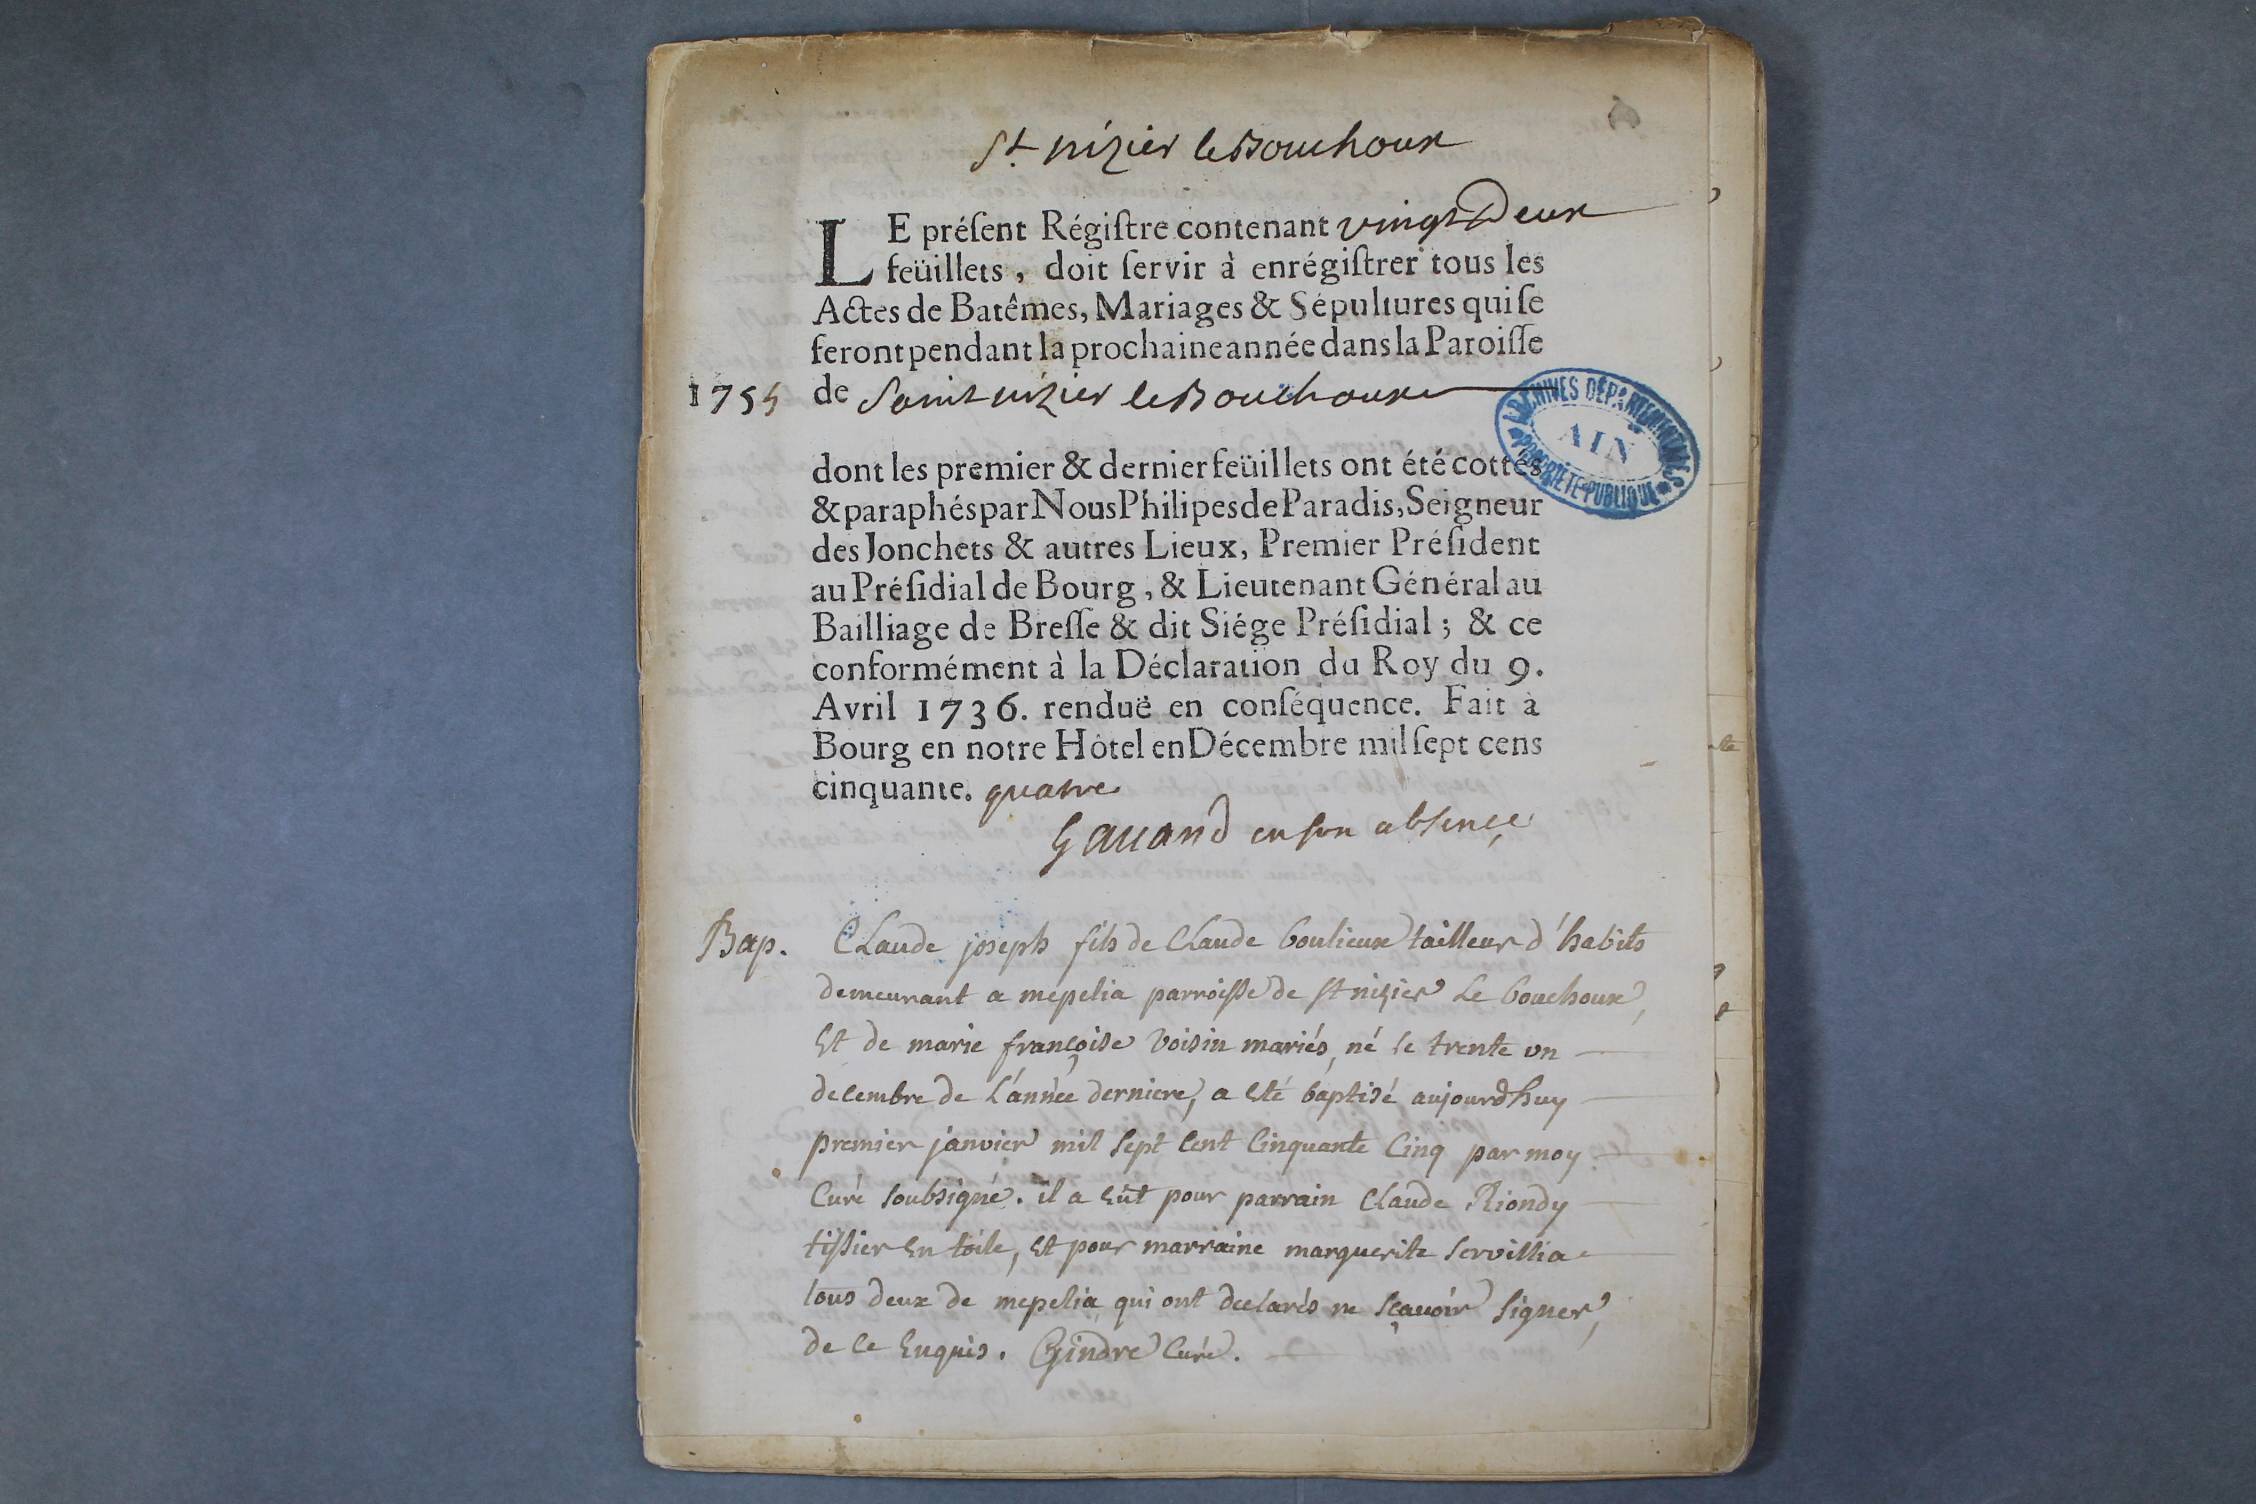 St nizier le Bouchoux
LE préſent Régiſtre contenant vingt Deux
feüillets, doit ſervir à enrégiſtrer tous les
Actes de Batêmes, Mariages & Sépultures qui ſe
feront pendant la prochaine année dans la Paroiſſe
1755 de Saint nizier le Bouchoux
ARCHIVES DÉPARTEMENTALES
AIN
PROPRIÉTÉ PUBLIQUE
dont les premier & dernier feüillets ont été cottés
& paraphés par Nous Philipes de Paradis, Seigneur
des Jonchets & autres Lieux, Premier Préſident
au Préſidial de Bourg, & Lieutenant Général au
Bailliage de Breſſe & dit Siége Préſidial; & ce
conformément à la Déclaration du Roy du 9.
Avril 1736. renduë en conſéquence. Fait à
Bourg en notre Hôtel en Décembre mil ſept cens
cinquante. quatre
Gauand en son absence
Bap. Claude joseph fils de Claude boulieux tailleur d'habits
demeurant a mépelia parroisse de St nizier Le bouchoux,
Et de marie françoise Voisin mariés, né le trente un
decembre de L'année derniere, a Eté baptisé aujourdhuy
premier janvier mil Sept Cent Cinquante Cinq par moy
Curé Soubsigné. il a Eût pour parrain Claude Riondy
tissier En toile, Et pour marraine marguerite Servillia
tous deux de mepelia qui ont declarés ne Sçavoir Signer,
de ce Enquis. Gindre Curé.